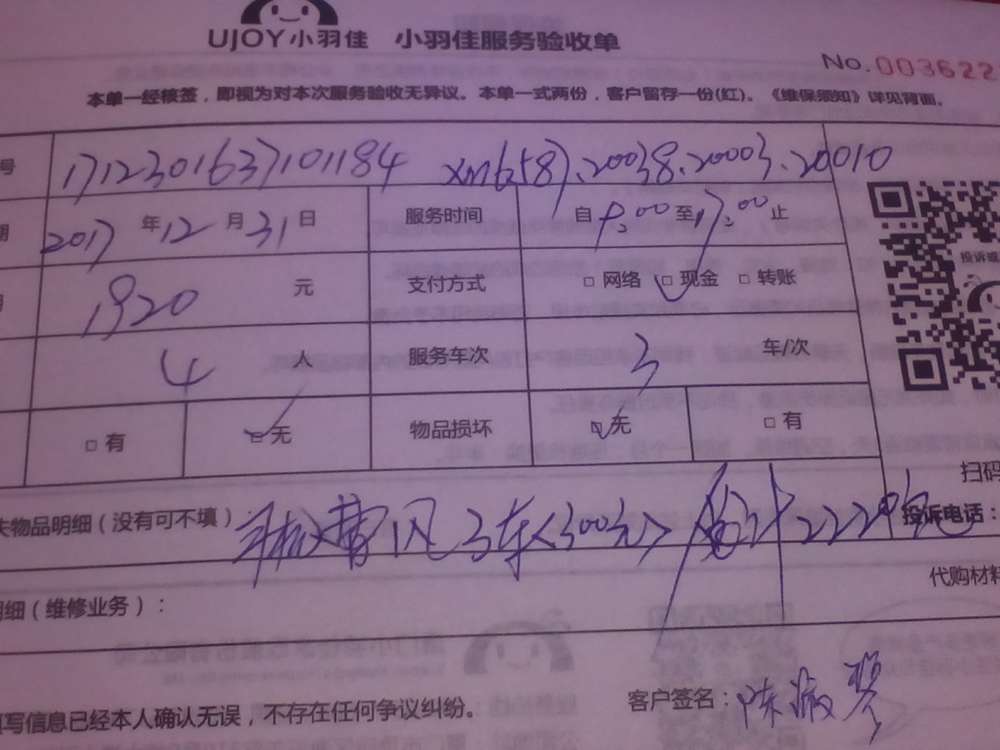 UJOY小羽佳 小羽佳服务验收单
No.003622
本单一经核签，即视为对本次服务验收无异议。本单一式两份，客户留存一份(红)。《维保须知》详见背面。
号 1712301637101184 xm6587.20038.20003.20010
期 2017 年 12 月 31 日 服务时间 自 9:00 至 17:00 止
1920 元 支付方式 □ 网络 □ 现金 □ 转账
投诉或
4 人 服务车次 3 车/次
□ 有 □ 无 物品损坏 □ 无 □ 有
扫码
失物品明细（没有可不填）： 3车<300元> 2220元
投诉电话：
代购材料
明细（维修业务）：
填写信息已经本人确认无误，不存在任何争议纠纷。 客户签名：陈